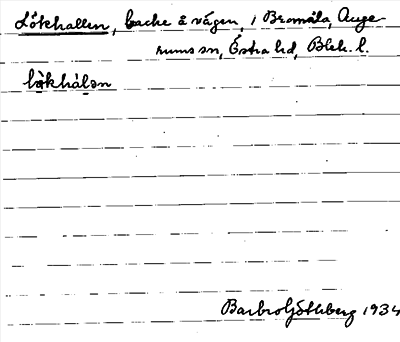 Lökhallen, backe å vägen, i Bromåla, Auge
rums sn, Östra hd, Blek. l.
lö̀khálən
Barbro Göthberg 1934